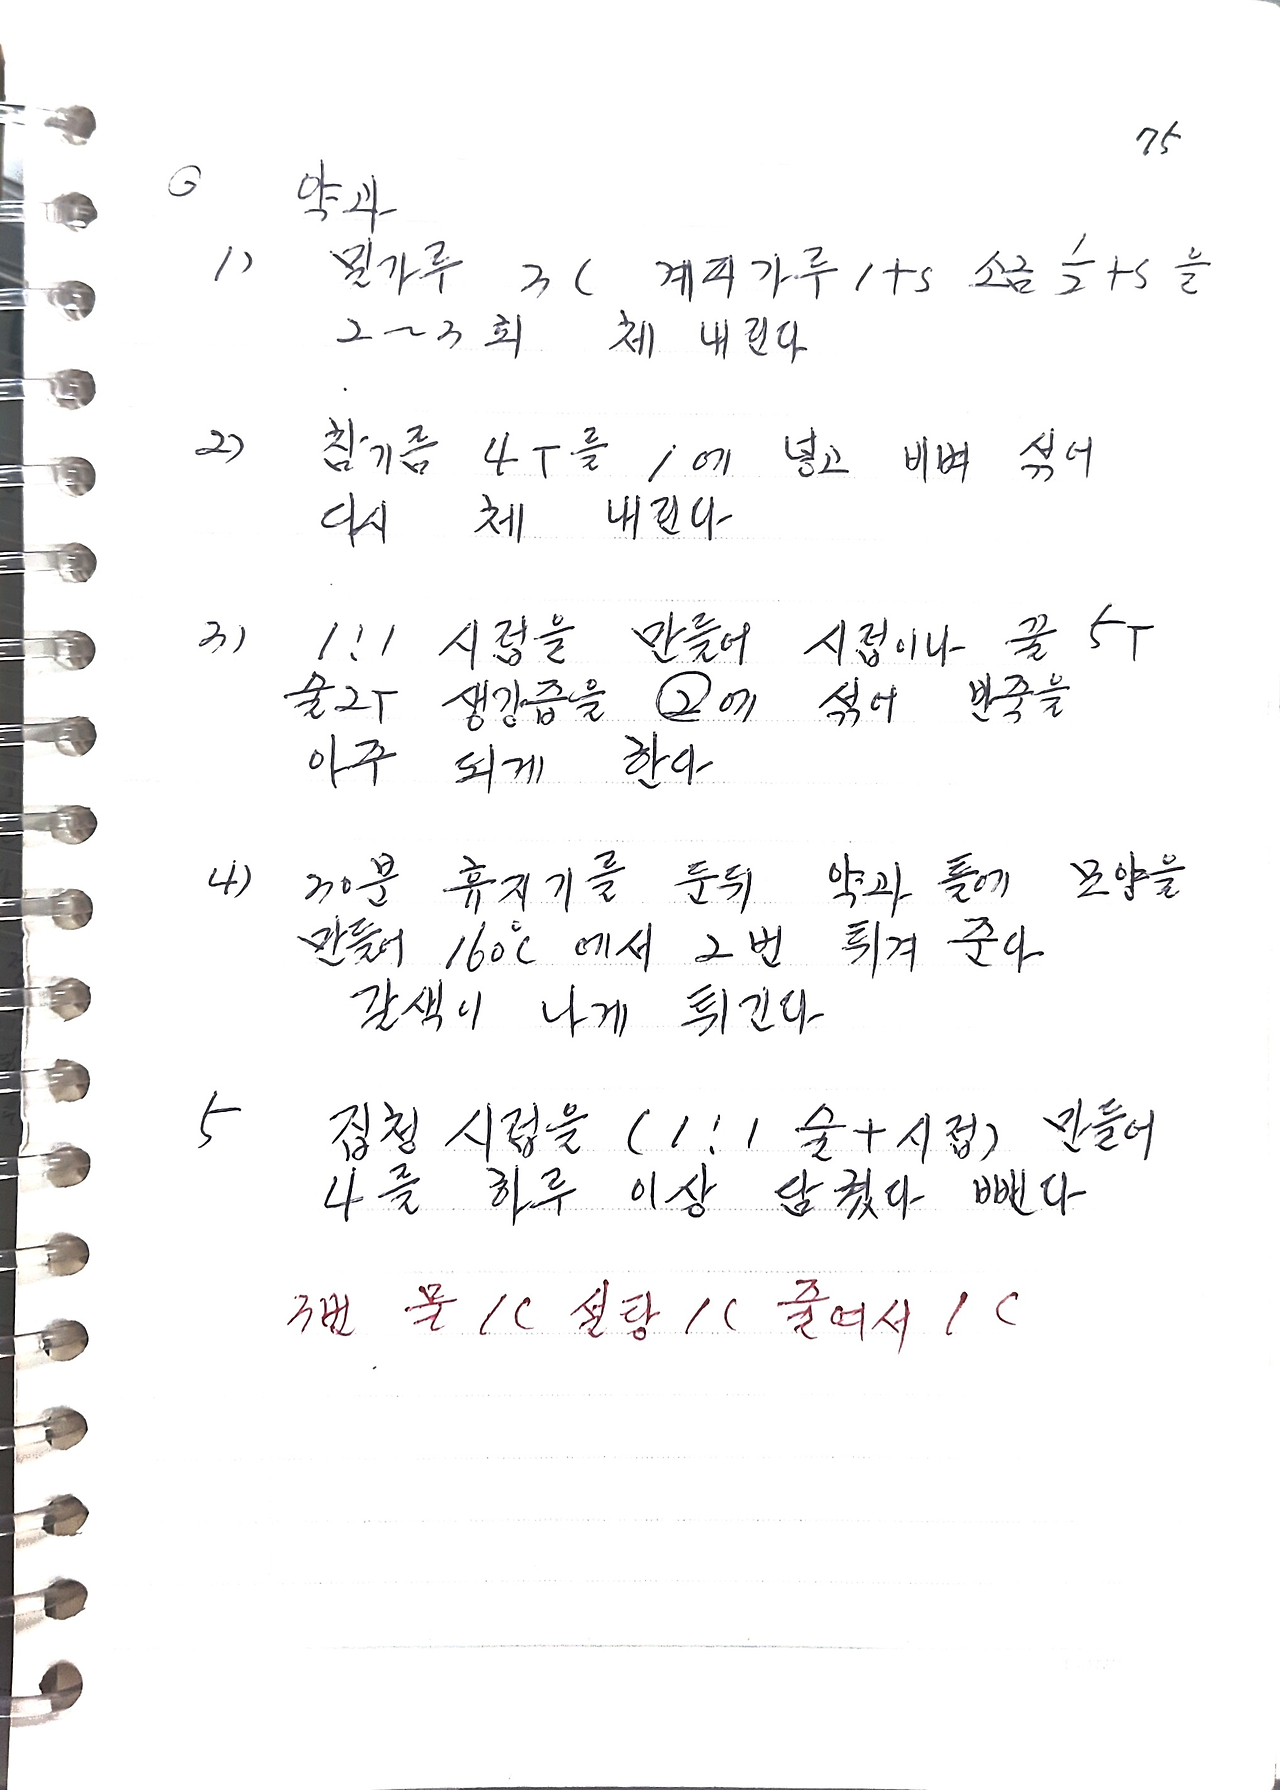 75
약과
1) 밀가루 3C 계피가루 1ts 소금 1/2 ts을
2~3회 체 내린다
2) 참기름 4T를 1에 넣고 비벼 섞어
다시 체 내린다
3) 1:1 시럽을 만들어 시럽이나 꿀 5T
술2T 생강즙을 ②에 섞어 반죽을
아주 되게 한다
4) 30분 휴지기를 둔뒤 약과 틀에 모양을
만들어 160℃에서 2번 튀겨 준다
갈색이 나게 튀긴다
5 집청 시럽을 (1:1 술+시럽) 만들어
4를 하루 이상 담궜다 뺀다
3번 물 1C 설탕 1C 졸여서 1C